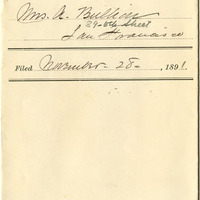 Mrs. A. Bullion
29-6th Street
San Francisco
Filed November 28 , 1891.